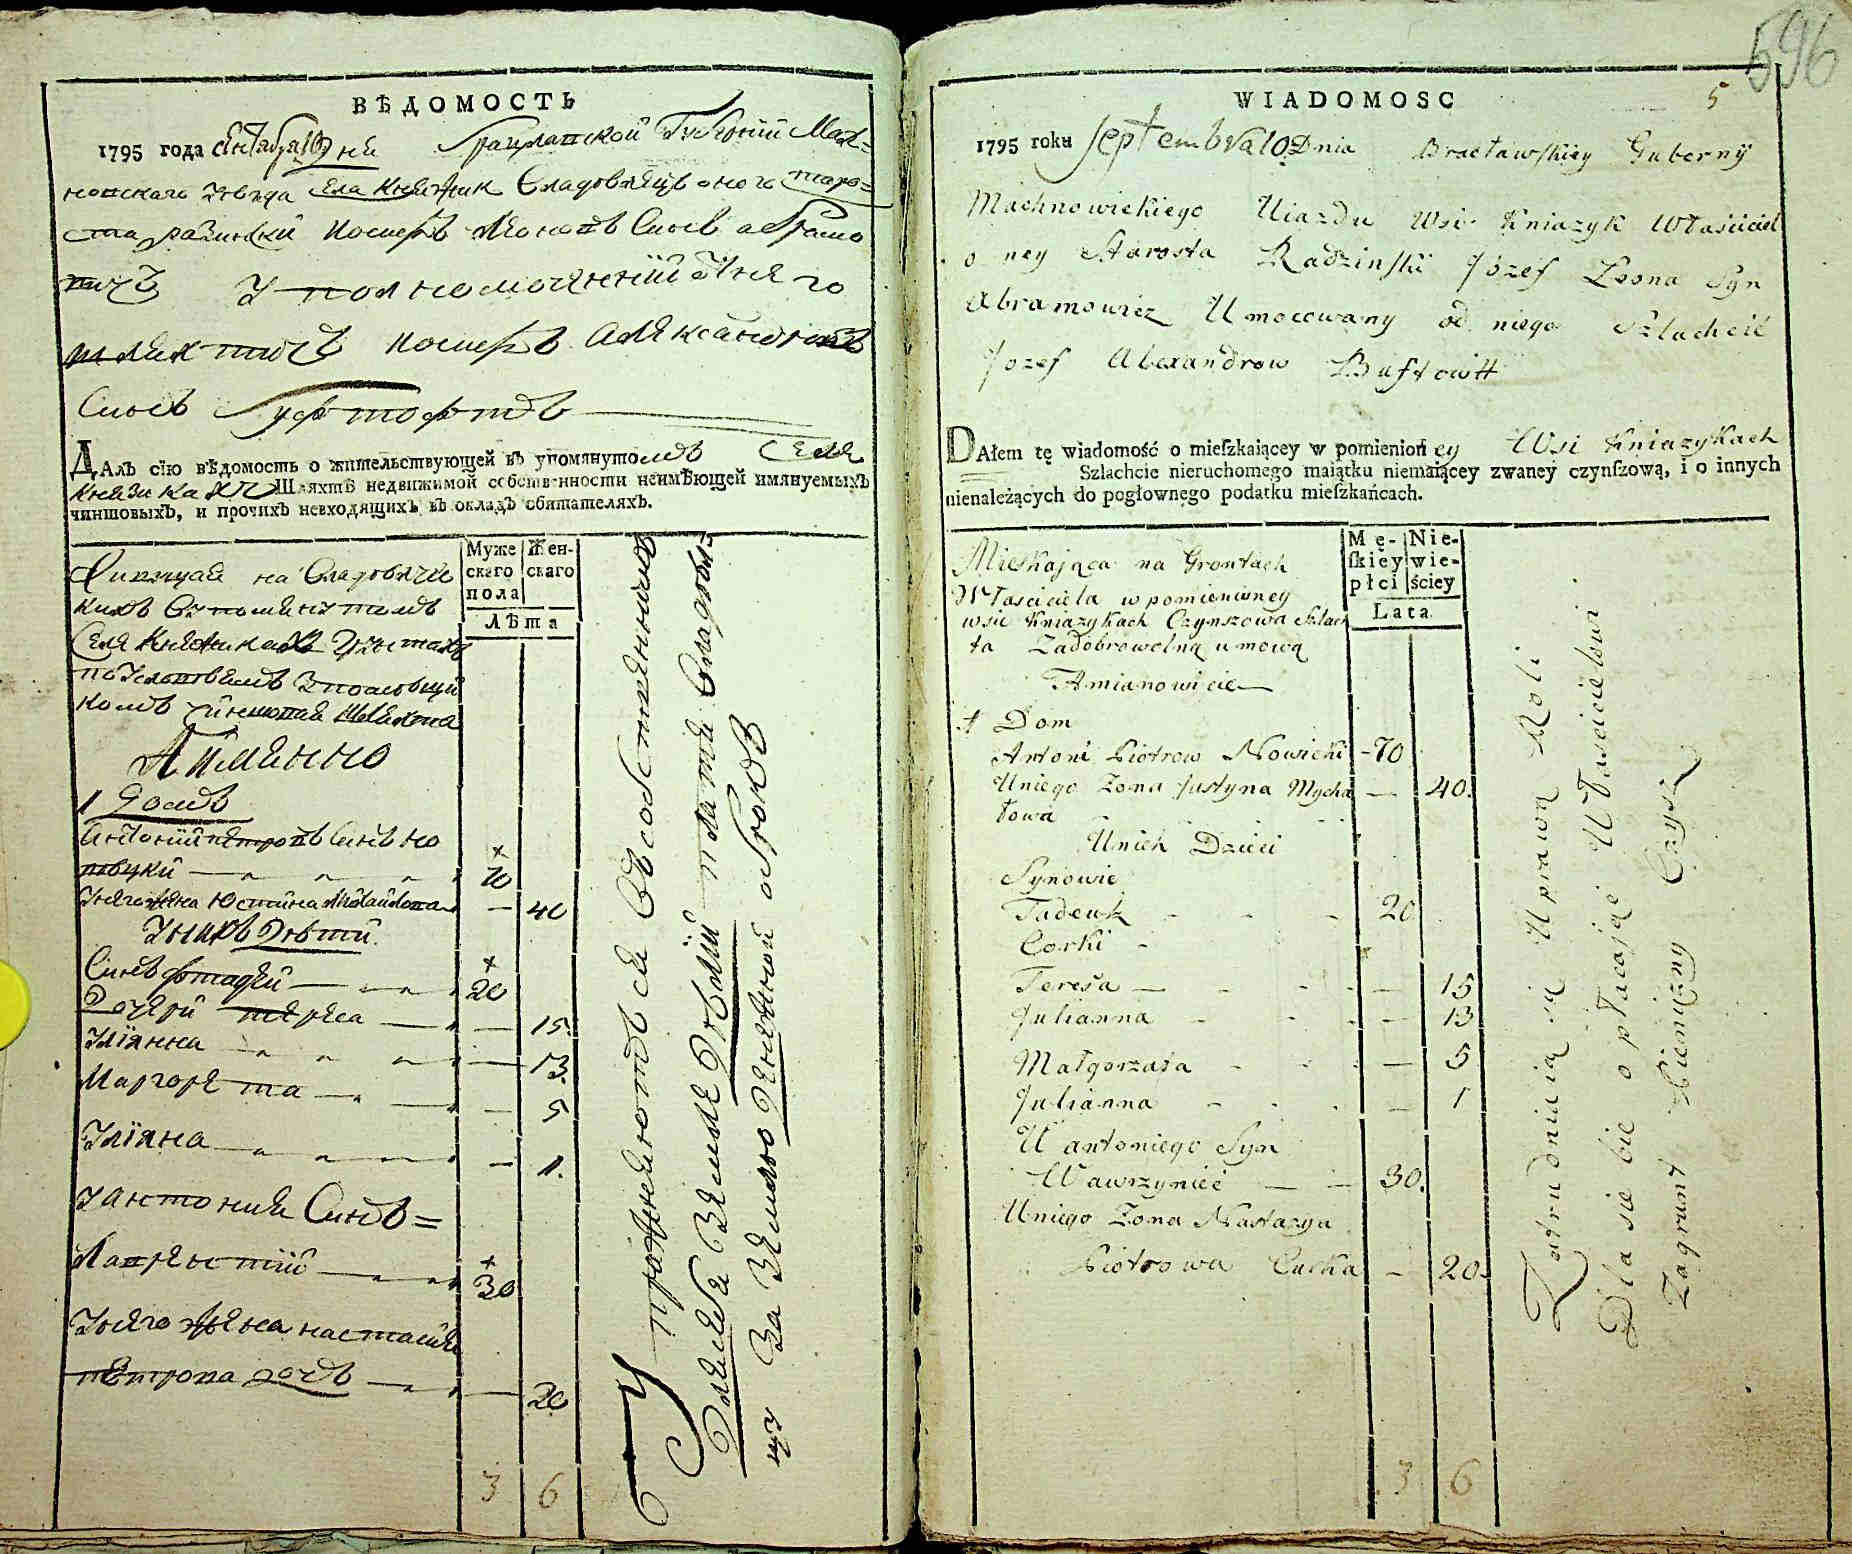 ВѢДОМОСТЬ
1795 года сентября 10 дня Брацлавской Губернии Мах=
новскаго уезда села Княжик Владелецъ оного старо=
ста радзинский иосифъ леоновъ Синъ абрамо
вичъ Уполномоченний от него
шляхтичъ иосифъ александровъ
Синъ
Далъ сїю вѣдомость о жительствующей въ упомянутомъ селе
Князиках Шляхтѣ недвижимой собственности неимѣющей имянуемыхъ
чиншовыхъ, и прочихъ невходящихъ въ окладъ обитателяхъ.
Муже
скаго
пола
Жен-
скаго
Лѣта
Живущая на Владелче
кихъ
Села Княжиках
чиншовая шляхта
А имянно
1 Домъ
Антоний петровъ Синъ но
вицкий 70
У него жена Юстина Михайлова 40
У них дети
Синъ фтадей 20
Дочери тереса 15
Улїянна 13
Маргорета 5
Улїяна 1
У антония Синъ=
Лаврентий 30
У него жена настасия
петрова дочъ 20
3 6
Упражняются въ собственной
для себя земле
за землю денежной оброкъ
596
5
WIADOMOSC
1795 roku Septembra 10 Dnia Bracławskiey Gubernÿ
Machnowickiego Uiazdu Wsi Kniazyk Właściciel
o ney Starosta Radzinski Józef Leona Syn
Abramowicz Umocowany od niego Szlachcic
Jozef Alexandrow
DAłem tę wiadomość o mieſzkaiącey w pomienioney Wsi Kniazykach
Szlachcie nieruchomego maiątku niemaiącey zwaney czynſzową, i o innych
nienależących do pogłownego podatku mieſzkańcach.
Mę-
ſkiey
płci
Nie-
wie-
ściey
Lata
Mieskająca na Grontach
Własciciela wpomienioney
wsie Kniazykach Czynszowa Szlach
ta Zadobrowolną umową
Amianowicie
1 Dom
Antoni Piotrow Nowicki 70
Uniego Zona Justyna Mycha 40
łowa
Unich Dzieci
Synowie
Tadeusz 20
Corki
Teresa 15
Julianna 13
Małgorzata 5
Julianna 1
U antoniego Syn
Wawrzyniec 30
Uniego Zona Nastazya
Piotrowa Curka 20
3 6
Zatrudniaią się Uprawą Roli
Dla siebie opłacaiąc Włascicielowi
Zagrunt Pieniężny Czynsz